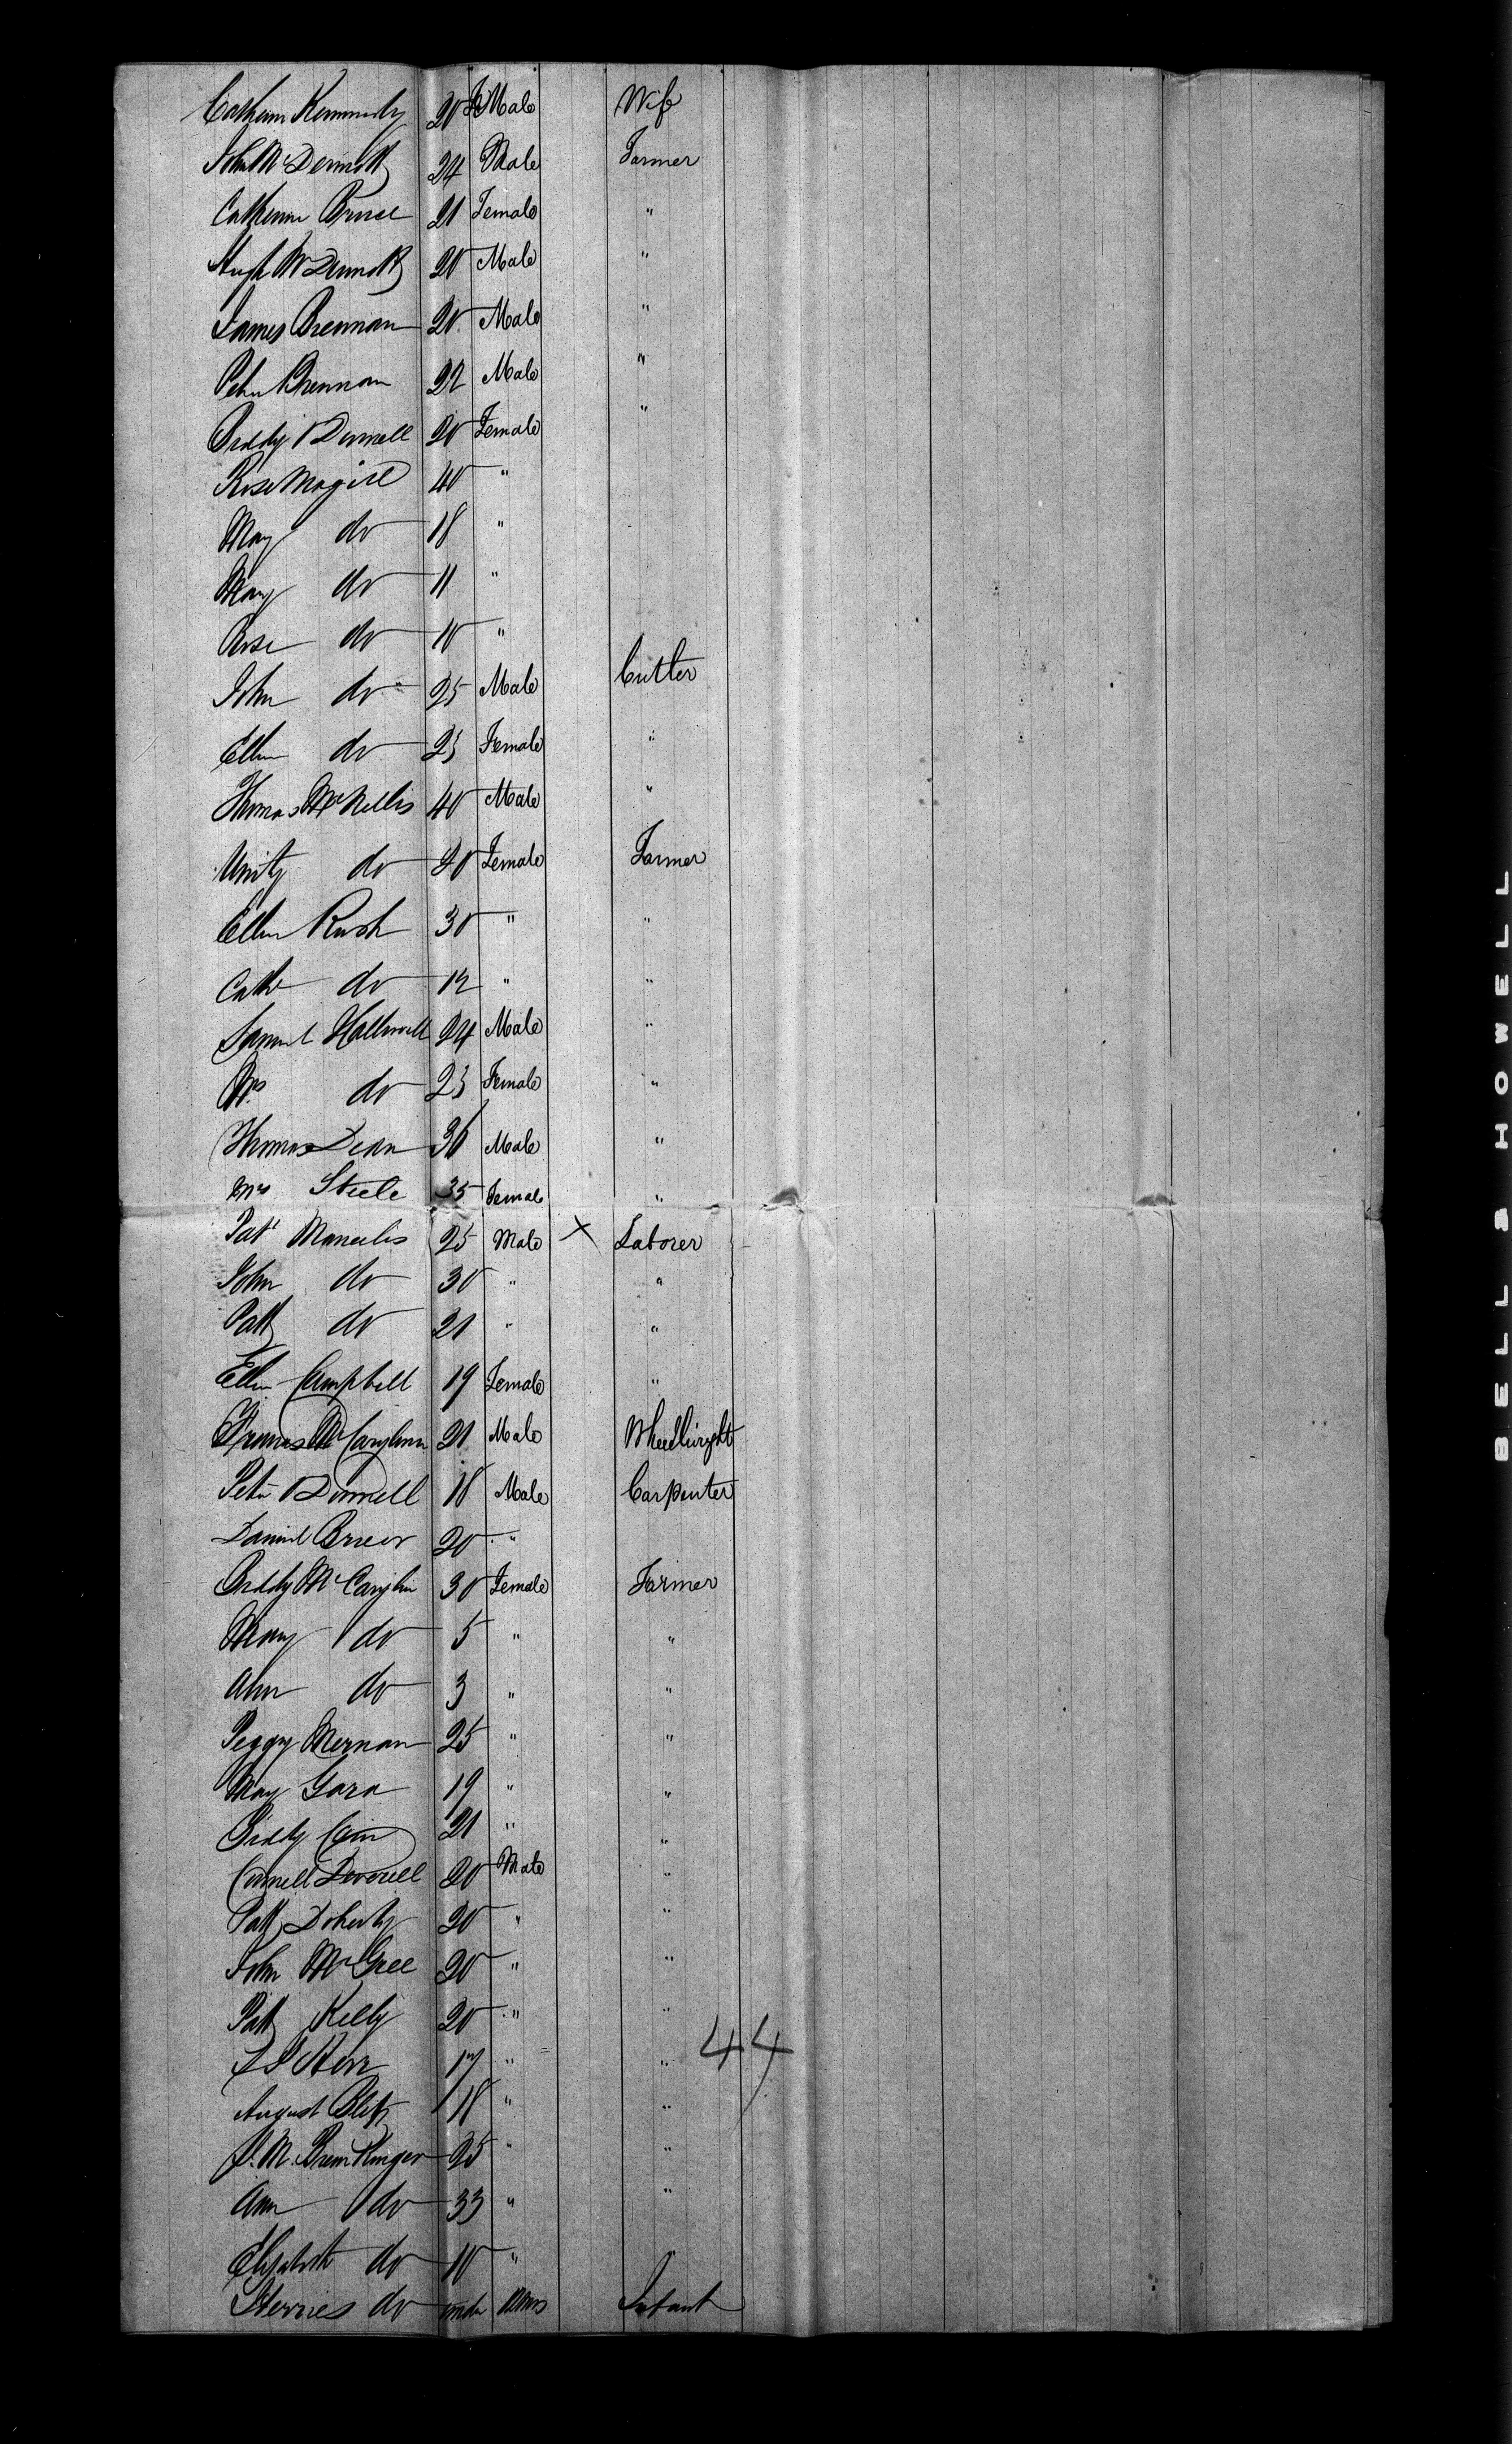 Catherin Kennedy 20 FeMale Wife
John McDermott 24 Male Farmer
Catherine Bruce 21 Female "
Hugh McDermott 20 Male "
James Brennan 20 Male "
Peter Brennan 22 Male "
Briddy Donnell 20 Female "
Rose Magill 40 "
May do 18 "
Mary do 11 "
Rose do 10 "
John do 25 Male Cutler
Ellen do 23 Female "
Thomas McNellis 40 Male "
Unity do 40 Female Farmer
Ellen Rush 30 " "
Cathe do 12 " "
Samuel Halliwell 24 Male "
Mrs do 23 Female "
Thomas Dean 36 Male "
Mrs Steele 35 Female "
Patt 25 Male X Laborer
John do 30 " "
Patt do 21 " "
Ellen Campbell 19 Female "
Francis Mc 21 Male Wheelwright
Peter Donnell 18 Male Carpenter
Daniel 20 "
Briddy Mc 30 Female Farmer
Mary do 5 " "
Ann do 3 " "
Peggy 25 " "
May Gara 19 " "
Briddy Cain 21 " "
20 Male "
Patt Doherty 20 " "
John McGee 20 " "
Patt Kelly 20 " "
Kerr 17 " " 44
August 18 " "
25 " "
Ann do 33 " "
Elizabeth do 10 "
do under Infant
BELL & HOWELL